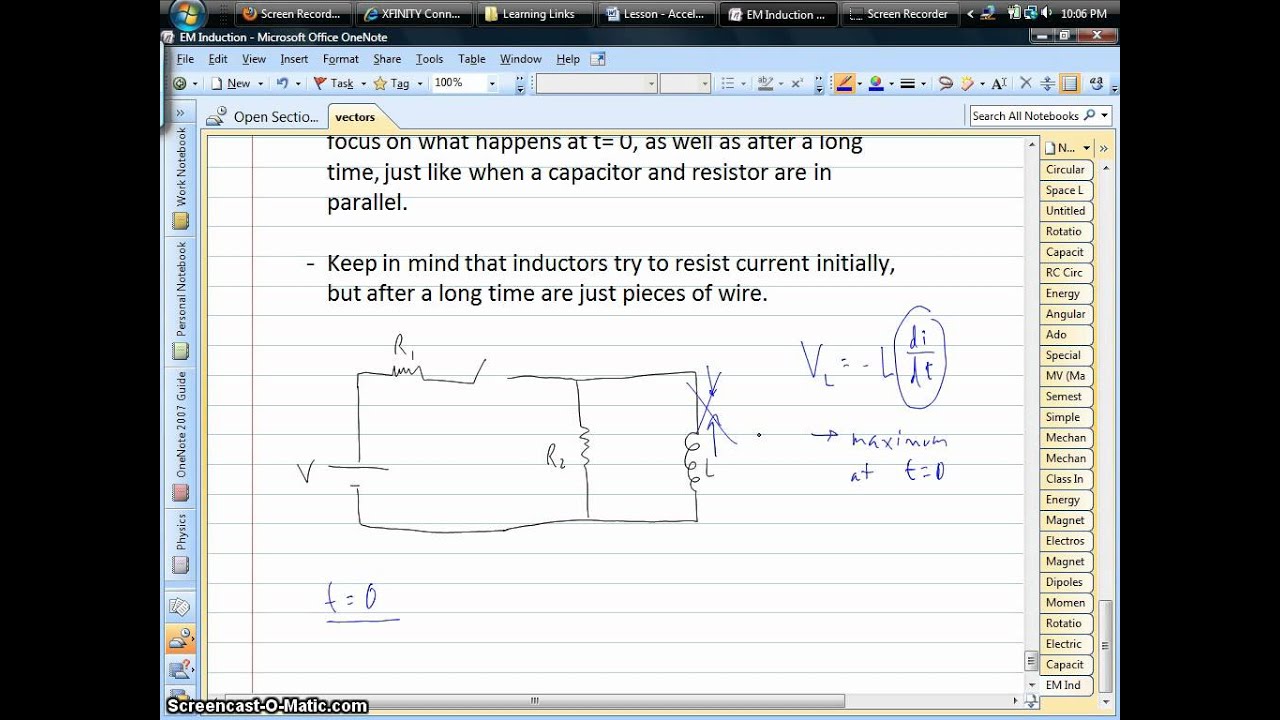 Screen Record...
XFINITY Conn...
Learning Links
Lesson - Accel...
EM Induction ...
Screen Recorder
10:06 PM
EM Induction - Microsoft Office OneNote
File Edit View Insert Format Share Tools Table Window Help
New Task Tag 100%
Open Sectio... vectors
Search All Notebooks
N...
Work Notebook
Personal Notebook
OneNote 2007 Guide
Physics
focus on what happens at t= 0, as well as after a long
time, just like when a capacitor and resistor are in
parallel.
- Keep in mind that inductors try to resist current initially,
but after a long time are just pieces of wire.
R1
V
R2
L
VL = - L di/dt
→ maximum
at t=0
t = 0
Circular
Space L
Untitled
Rotatio
Capacit
RC Circ
Energy
Angular
Ado
Special
MV (Ma
Semest
Simple
Mechan
Mechan
Class In
Energy
Magnet
Electros
Magnet
Dipoles
Momen
Rotatio
Electric
Capacit
EM Ind
Screencast-O-Matic.com